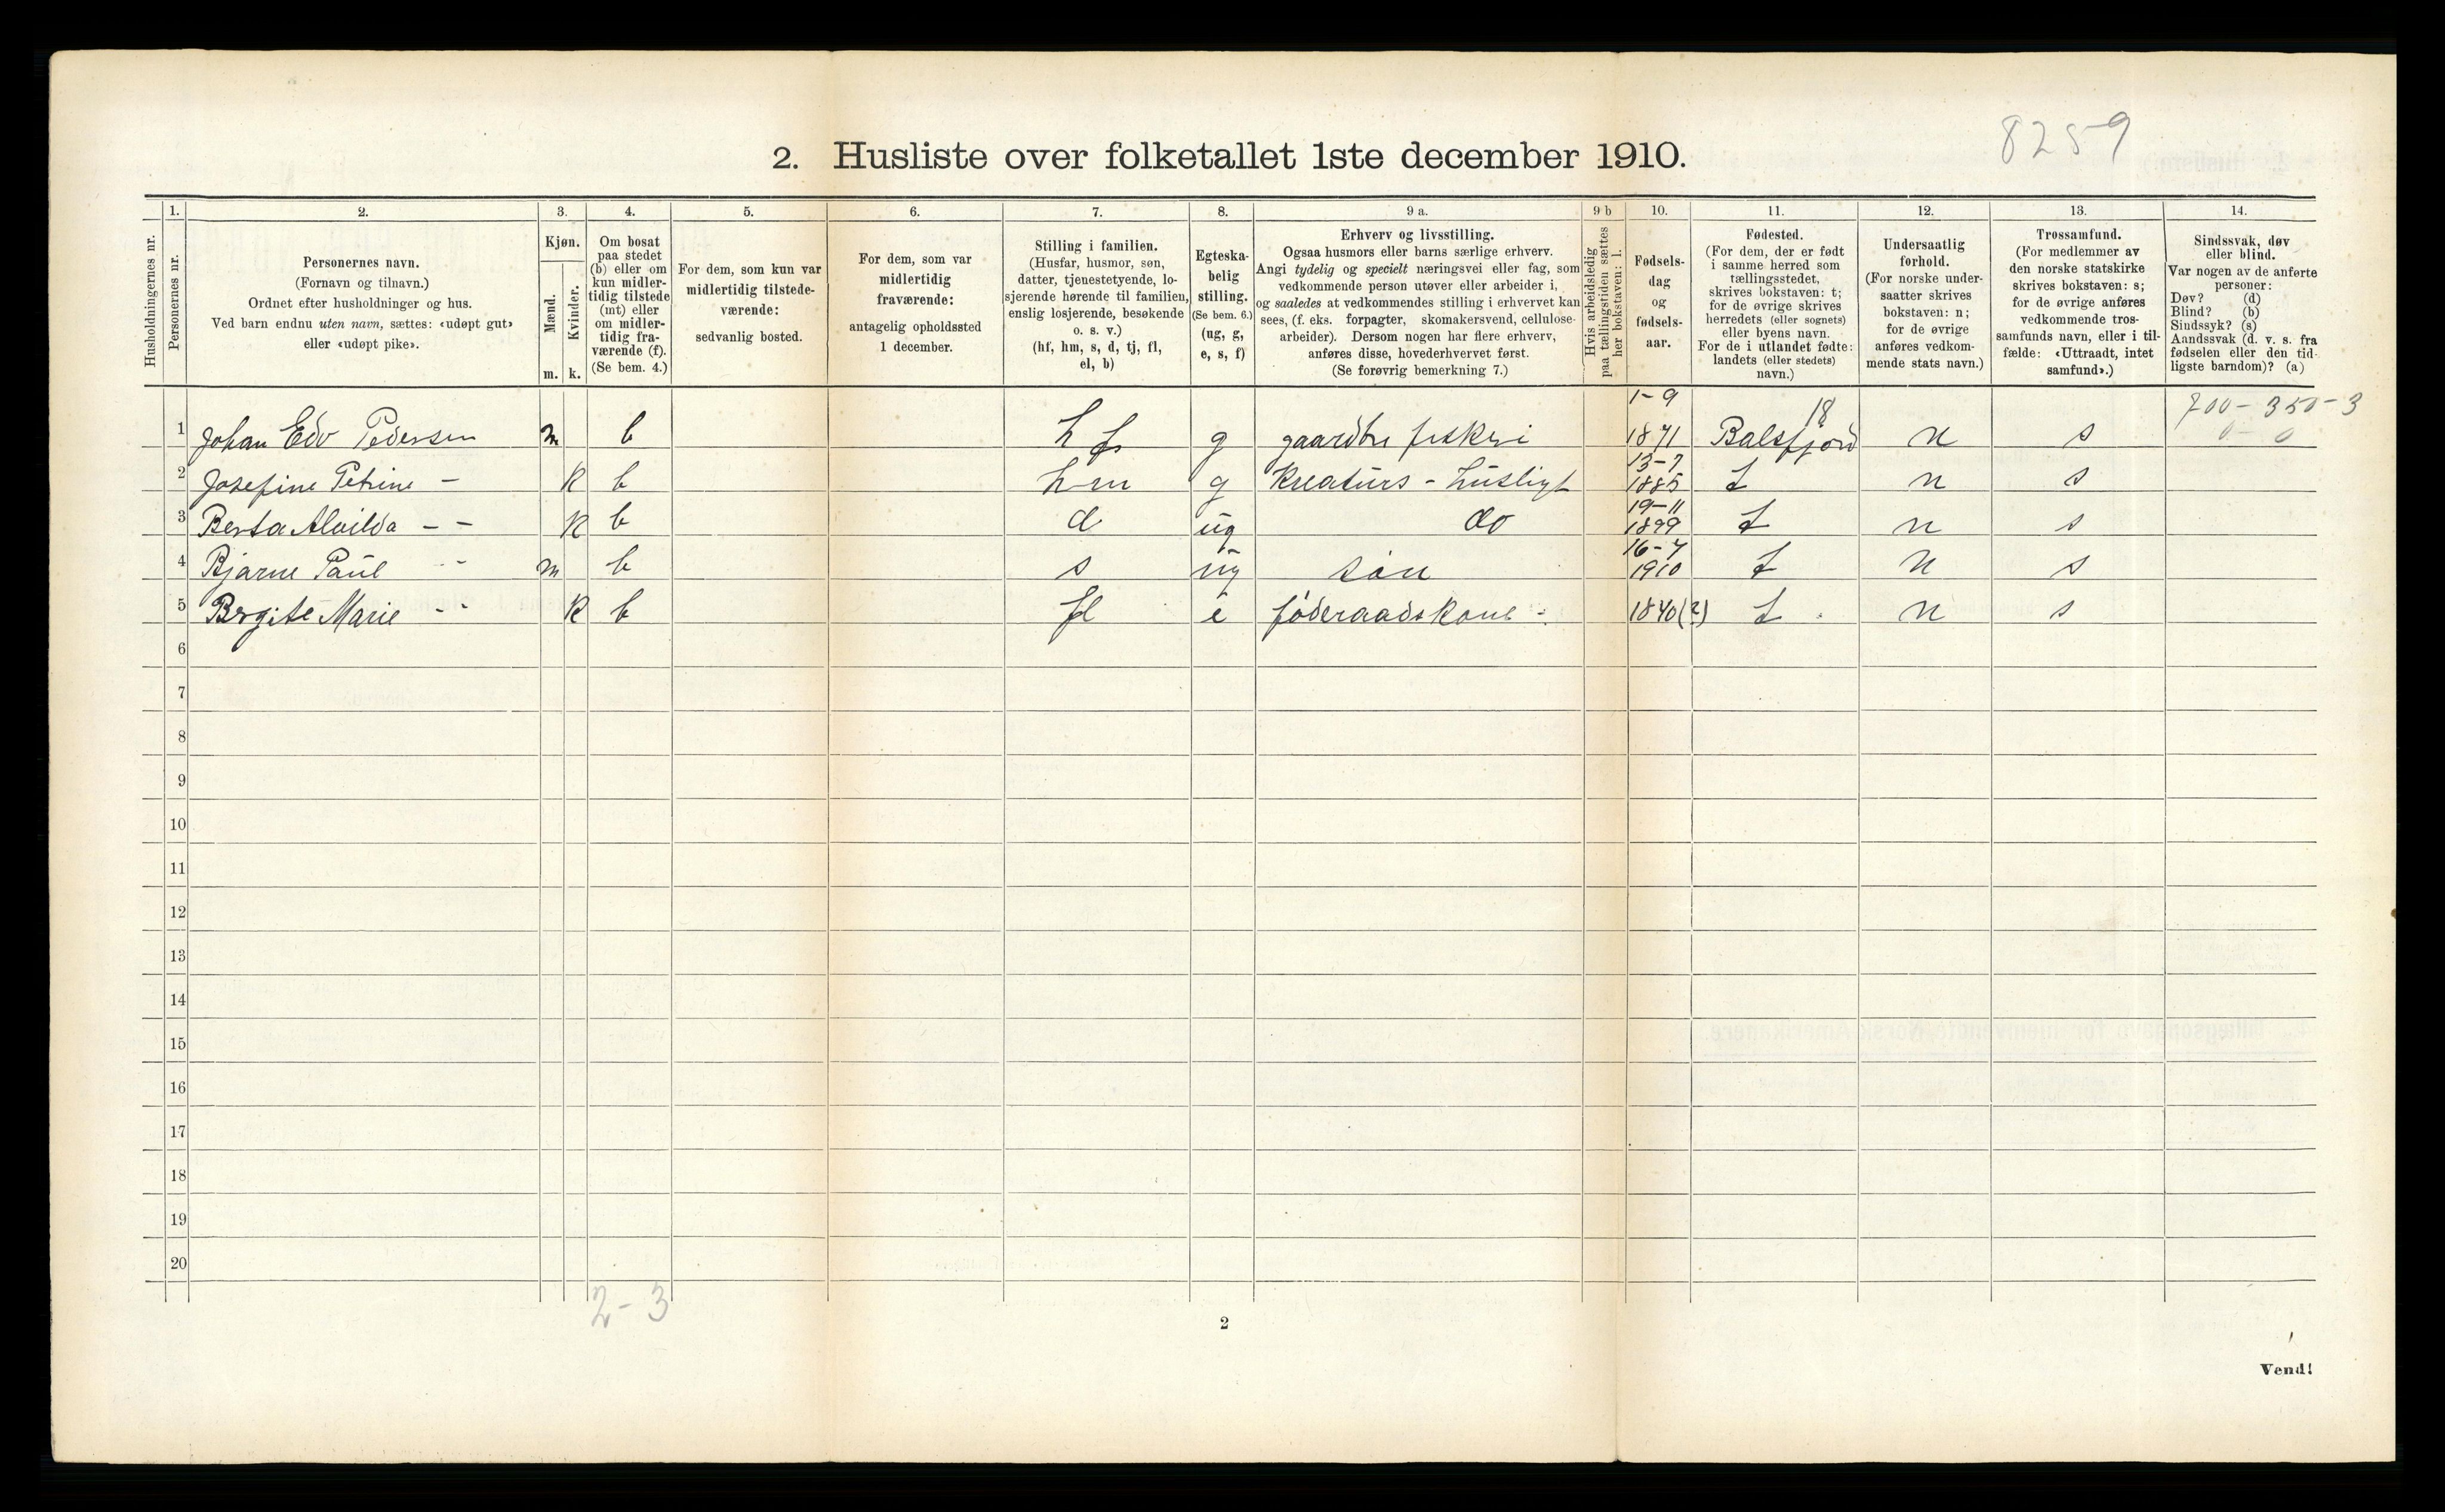 8259
2. Husliste over folketallet 1ste december 1910.
Husholdningernes nr.
1. 2. 3. 4. 5. 6. 7. 8. 9 a. 9 b 10. 11. 12. 13. 14.
Personernes nr.
Personernes navn.
(Fornavn og tilnavn.)
Ordnet efter husholdninger og hus.
Ved barn endnu uten navn, sættes: «udøpt gut»
eller «udøpt pike».
Kjøn.
Mænd.
Kvinder.
m. k.
Om bosat
paa stedet
(b) eller om
kun midler-
tidig tilstede
(mt) eller
om midler-
tidig fra-
værende (f).
(Se bem. 4.)
For dem, som kun var
midlertidig tilstede-
værende:
sedvanlig bosted.
For dem, som var
midlertidig
fraværende:
antagelig opholdssted
1 december.
Stilling i familien.
(Husfar, husmor, søn,
datter, tjenestetyende, lo-
sjerende hørende til familien,
enslig losjerende, besøkende
o. s. v.)
(hf, hm, s, d, tj, fl,
el, b)
Egteska-
belig
stilling.
(Se bem. 6.)
(ug, g,
e, s, f)
Erhverv og livsstilling.
Ogsaa husmors eller barns særlige erhverv.
Angi tydelig og specielt næringsvei eller fag, som
vedkommende person utøver eller arbeider i,
og saaledes at vedkommendes stilling i erhvervet kan
sees, (f. eks. forpagter, skomakersvend, cellulose-
arbeider). Dersom nogen har flere erhverv,
anføres disse, hovederhvervet først.
(Se forøvrig bemerkning 7.)
Hvis arbeidsledig
paa tællingstiden sættes
her bokstaven: l.
Fødsels-
dag
og
fødsels-
aar.
Fødested.
(For dem, der er født
i samme herred som
tællingsstedet,
skrives bokstaven: t;
for de øvrige skrives
herredets (eller sognets)
eller byens navn.
For de i utlandet fødte:
landets (eller stedets)
navn.)
Undersaatlig
forhold.
(For norske under-
saatter skrives
bokstaven: n;
for de øvrige
anføres vedkom-
mende stats navn.)
Trossamfund.
(For medlemmer av
den norske statskirke
skrives bokstaven: s;
for de øvrige anføres
vedkommende tros-
samfunds navn, eller i til-
fælde: «Uttraadt, intet
samfund».)
Sindssvak, døv
eller blind.
Var nogen av de anførte
personer:
Døv? (d)
Blind? (b)
Sindssyk? (s)
Aandssvak (d. v. s. fra
fødselen eller den tid-
ligste barndom)? (a)
1-9 18 700-350-3
1 Johan Edv Pedersen m b hf g gaardbr fiskeri 1871 Balsfjord n s 0-0
13-7
2 Josefine Petrine - k b hm g Kreaturs - husligt 1885 t n s
19-11
3 Berta Alvilda - - k b d ug do 1899 t n s
16-7
4 Bjarne Paul - - m b s ug søn 1910 t n s
5 Brgite Marie - - k b fl e føderaadskone - 1840(?) t n s
6
7
8
9
10
11
12
13
14
15
16
17
18
19
20
2-3
2
Vend!